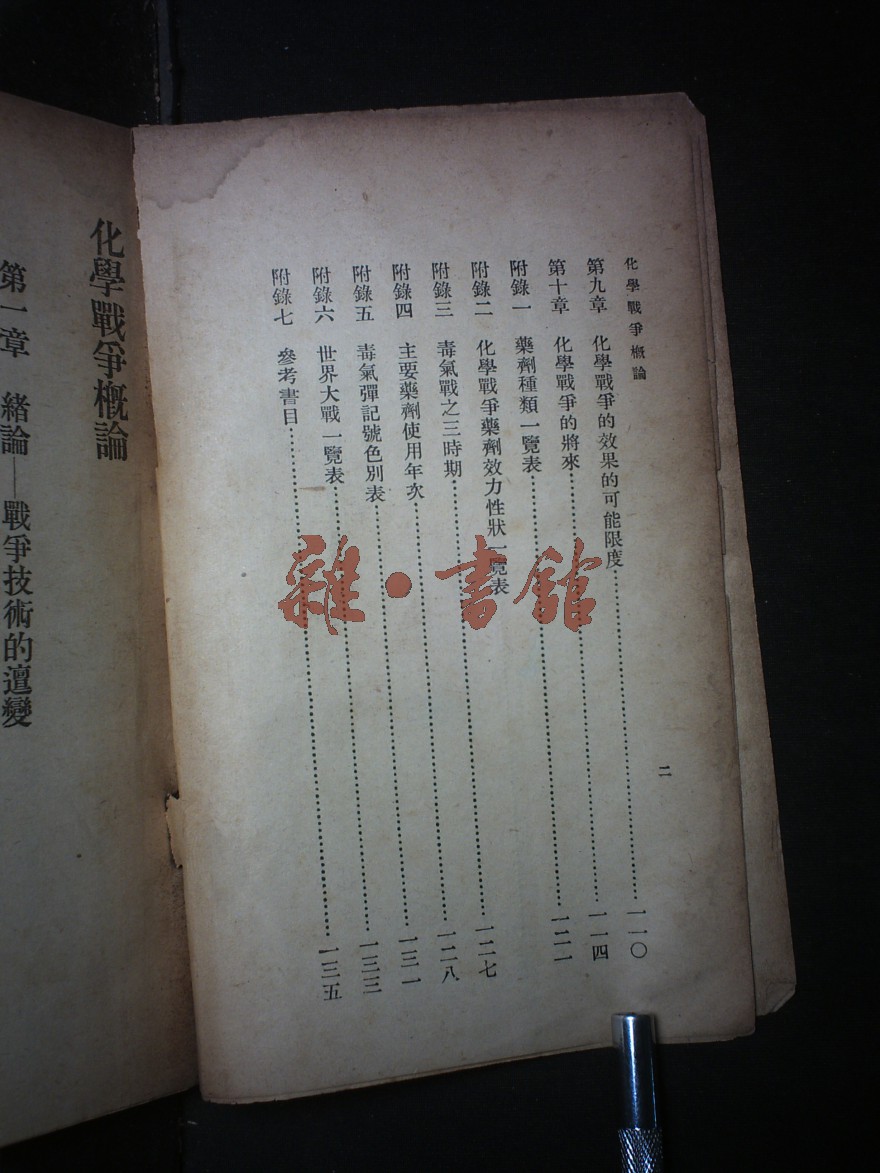 化學戰爭概論
第九章 化學戰爭的效果的可能限度……一一〇
第十章 化學戰爭的將來……一一四
附錄一 藥劑種類一覽表……一二一
附錄二 化學戰爭藥劑效力性狀一覽表
附錄三 毒氣戰之三時期……一二七
附錄四 主要藥劑使用年次……一二八
附錄五 毒氣彈記號色別表……一三一
附錄六 世界大戰一覽表……一三三
附錄七 參考書目……一三五
二
化學戰爭概論
第一章 緒論—戰爭技術的邅變
雜·書館